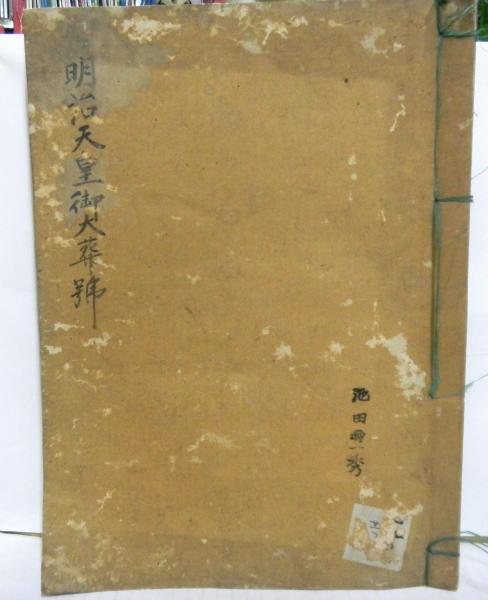 明治天皇御大葬號
池田